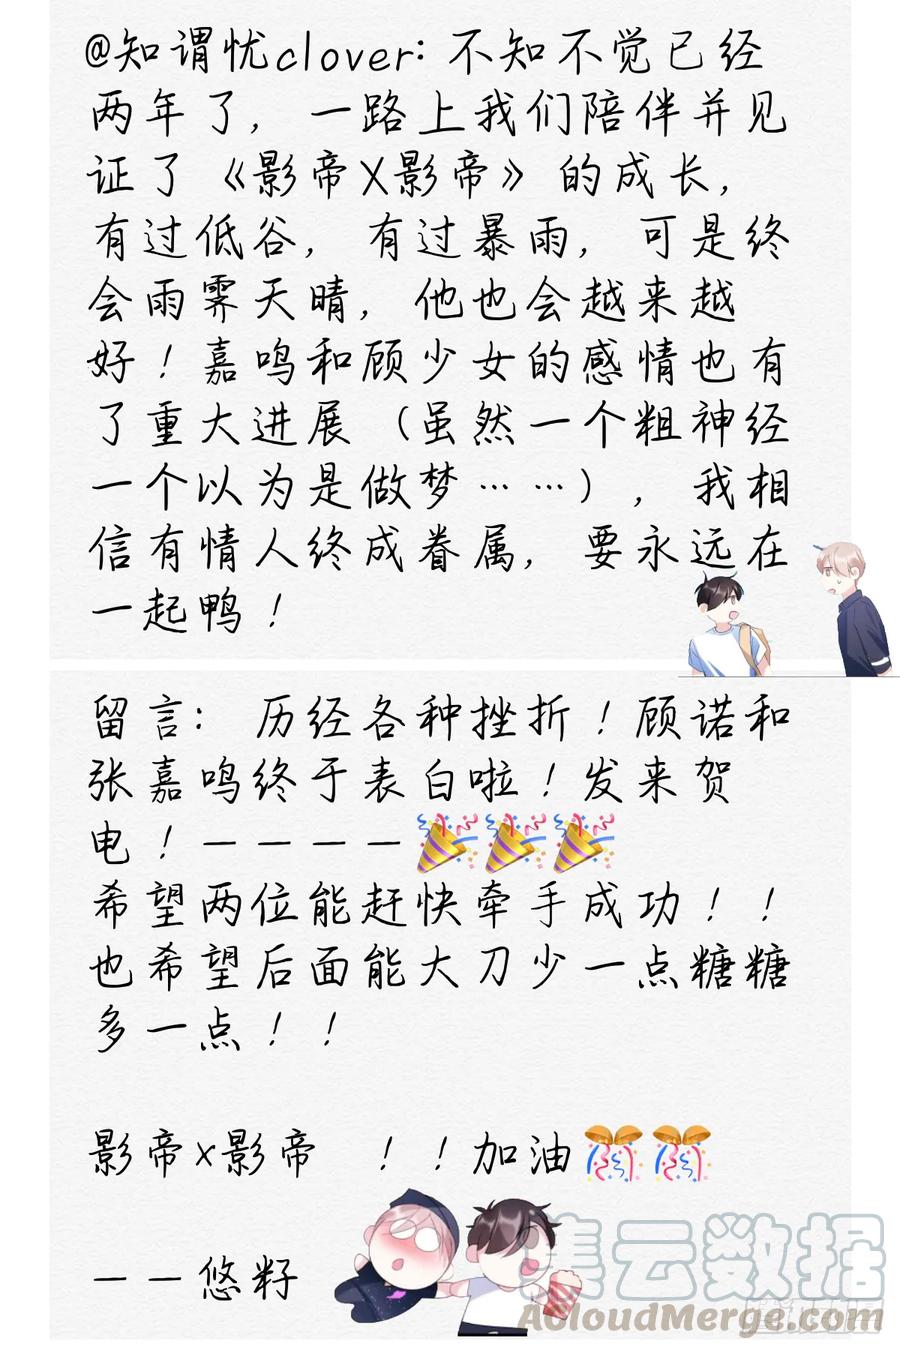 @知谓忧clover: 不知不觉已经
两年了，一路上我们陪伴并见
证了《影帝X影帝》的成长，
有过低谷，有过暴雨，可是终
会雨霁天晴，他也会越来越
好！嘉鸣和顾少女的感情也有
了重大进展（虽然一个粗神经
一个以为是做梦……），我相
信有情人终成眷属，要永远在
一起鸭！
留言：历经各种挫折！顾诺和
张嘉鸣终于表白啦！发来贺
电！————🎉🎉🎉
希望两位能赶快牵手成功！！
也希望后面能大刀少一点糖糖
多一点！！
影帝x影帝 ！！加油🎊🎊
——悠籽
集云数据
ACloudMerge.com